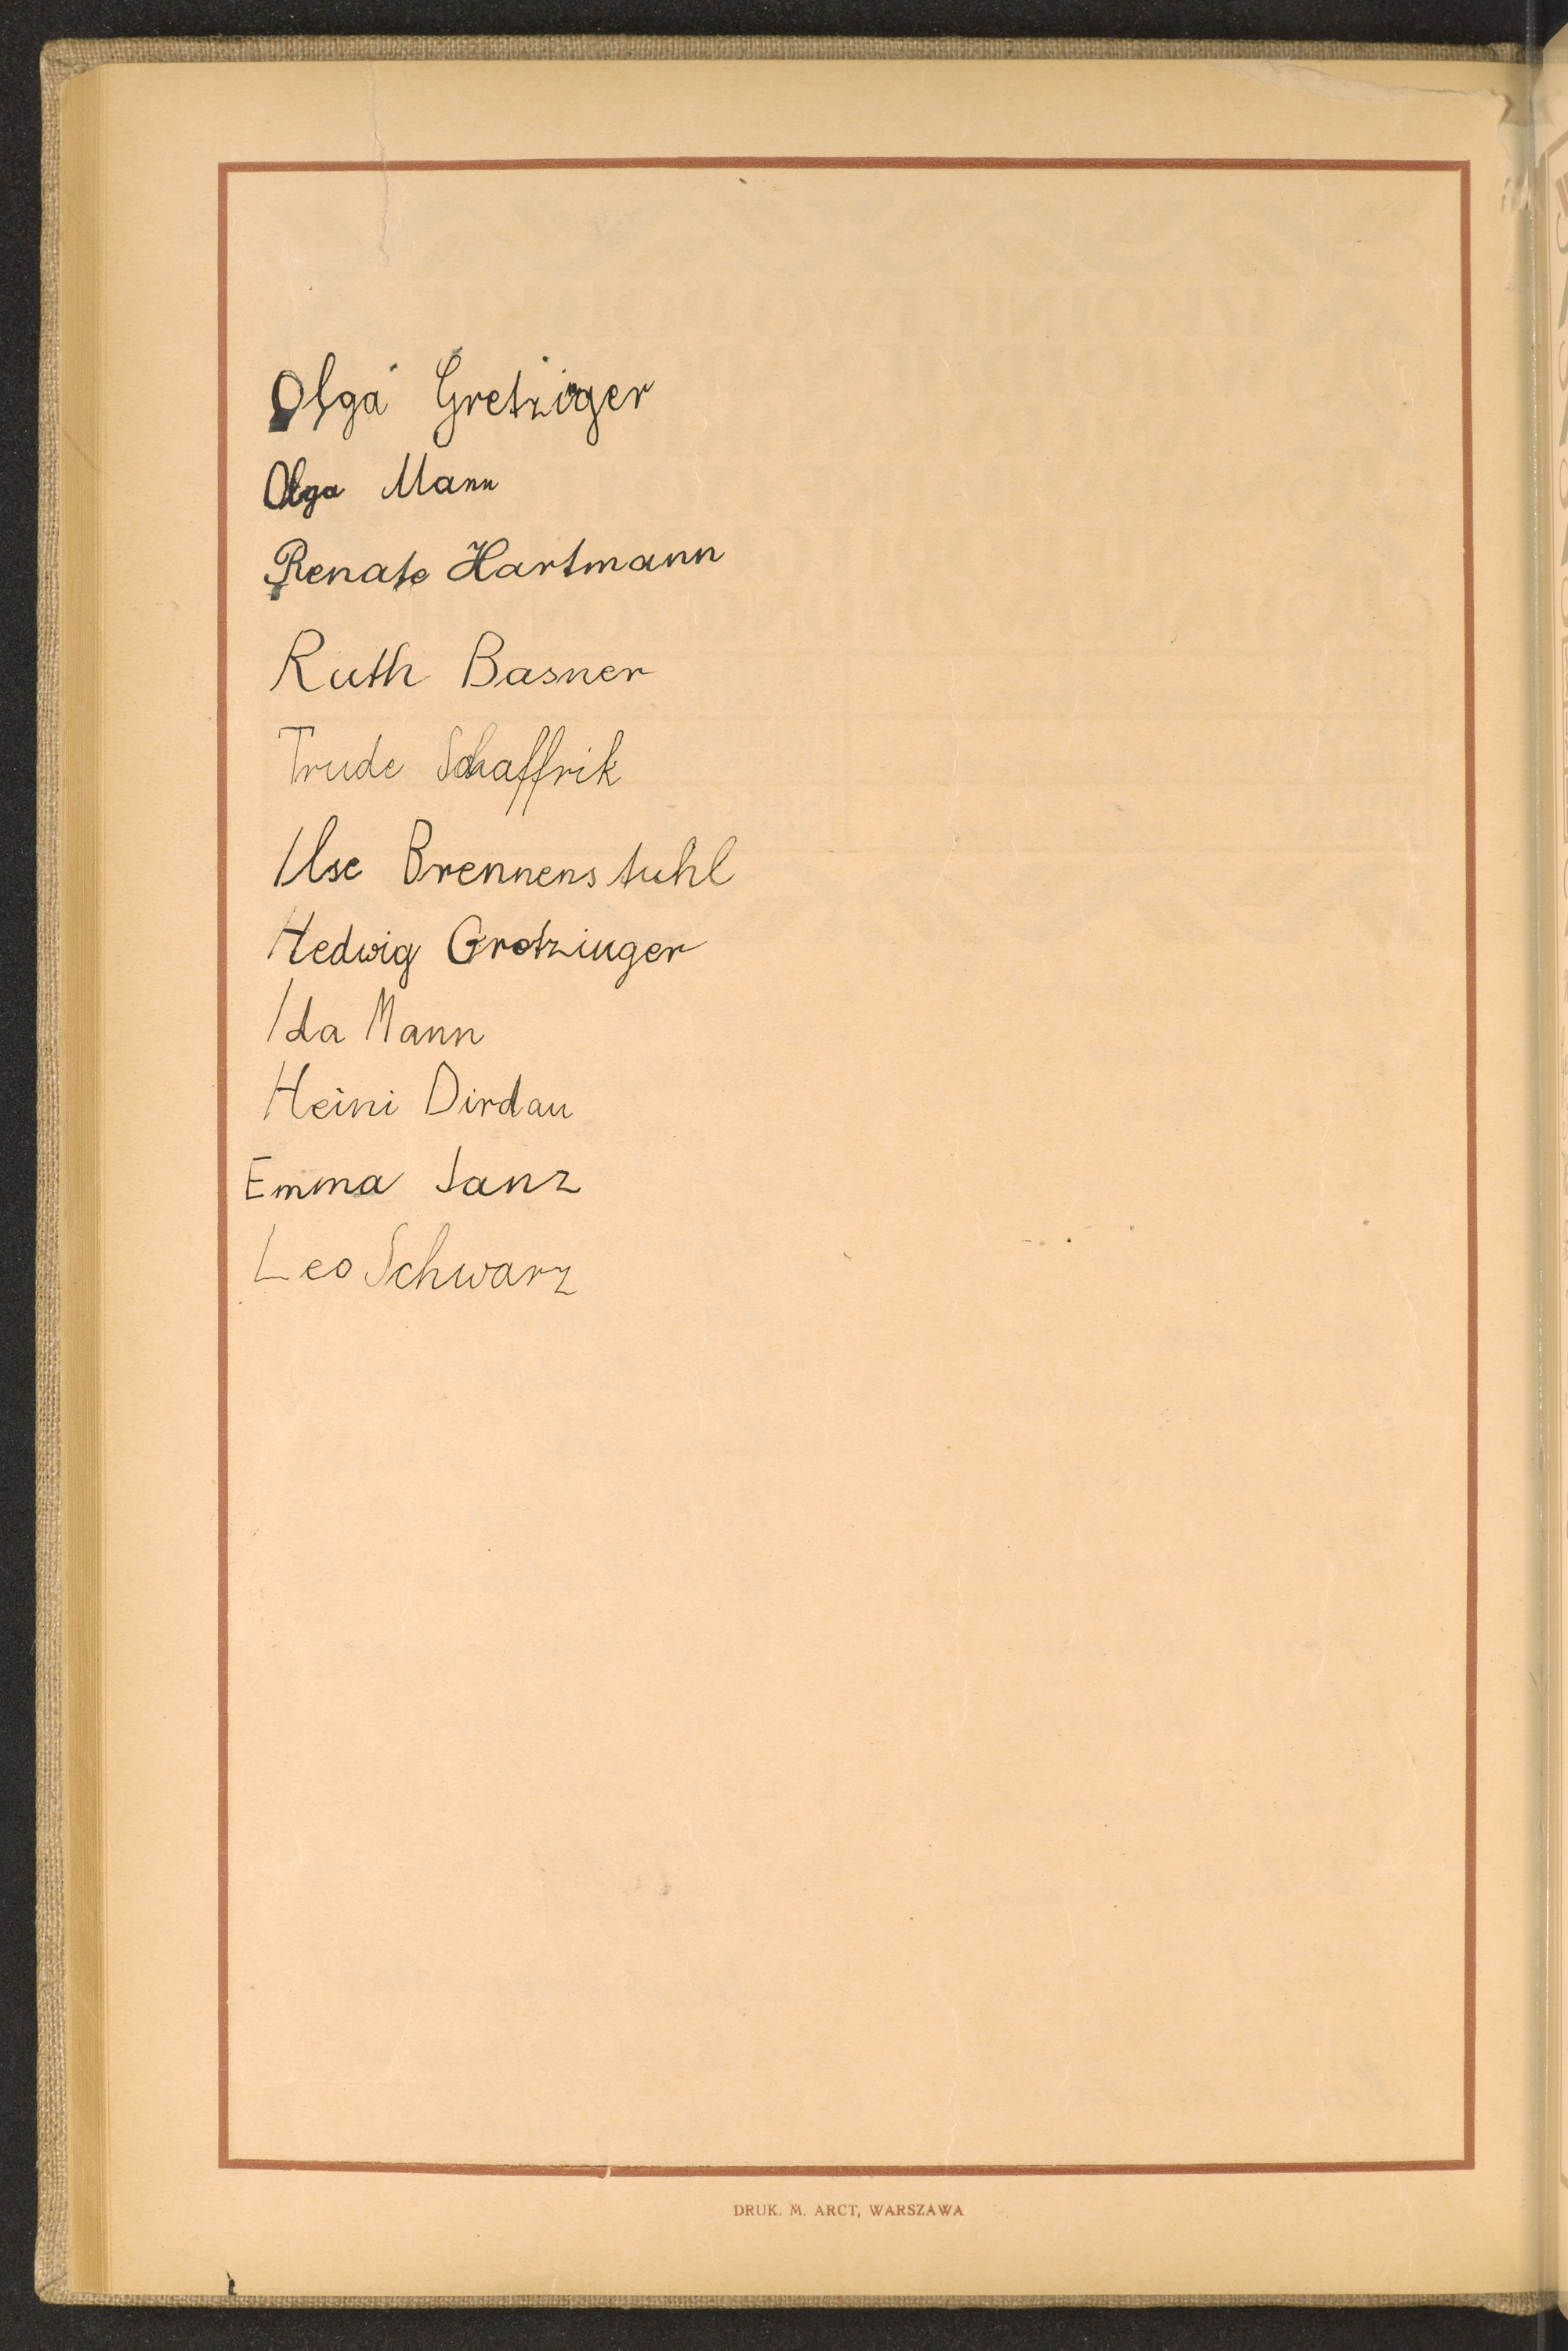 Olga Gretziger
Olga Mann
Renate Hartmann
Ruth Basner
Trude Schaffrik
Ilse Brennenstuhl
Hedwig Grotzinger
Ida Mann
Heini Dirdau
Emma Janz
Leo Schwarz
DRUK. M. ARCT, WARSZAWA